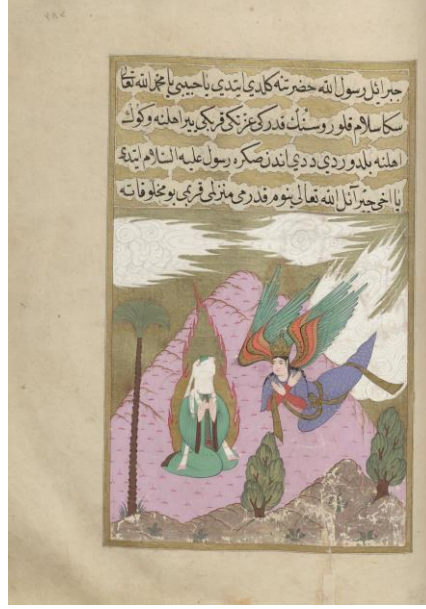 جبرائل رسول الله حضرتنه كلدي ايتدي يا حبيبي يا محمد الله تعالى
سكا سلام قلور و سنك قدركي عزتكي قربكي يير اهلنه و كوك
اهلنه بلدوردي ددي اندن صكره رسول عليه السلام ايتدى
يا اخي جبرآئل الله تعالى بنوم قدرمي منزلمي قربمي بو مخلوقاته